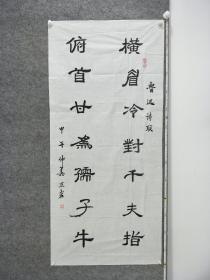 魯迅詩
橫眉冷對千夫指
俯首甘為孺子牛
甲午仲